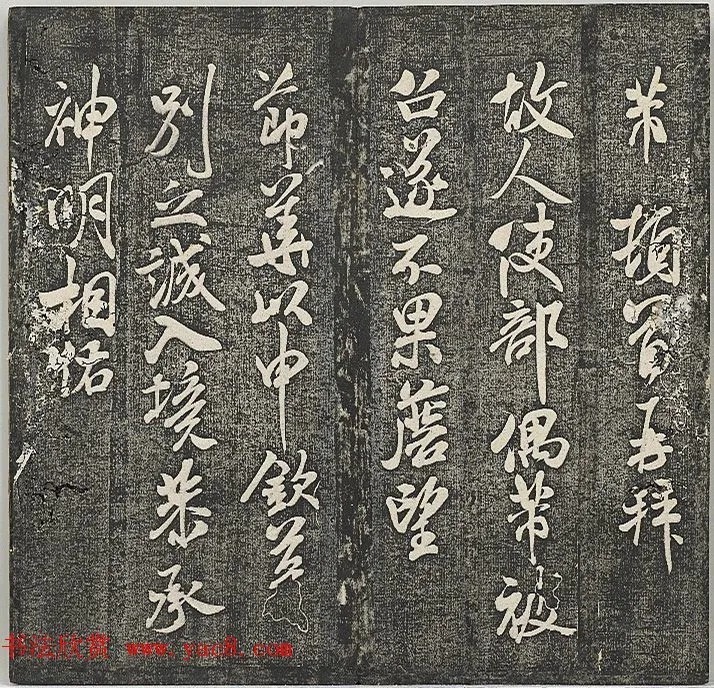 芾頓首再拜
故人使部偶芾被
召遂不果詹望
節華以申欽
別之誠入境恭承
神明相祐
书法欣赏 www.yac8.com